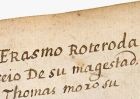 Erasmo Roteroda
cio De su magestad,
Thomas moro su